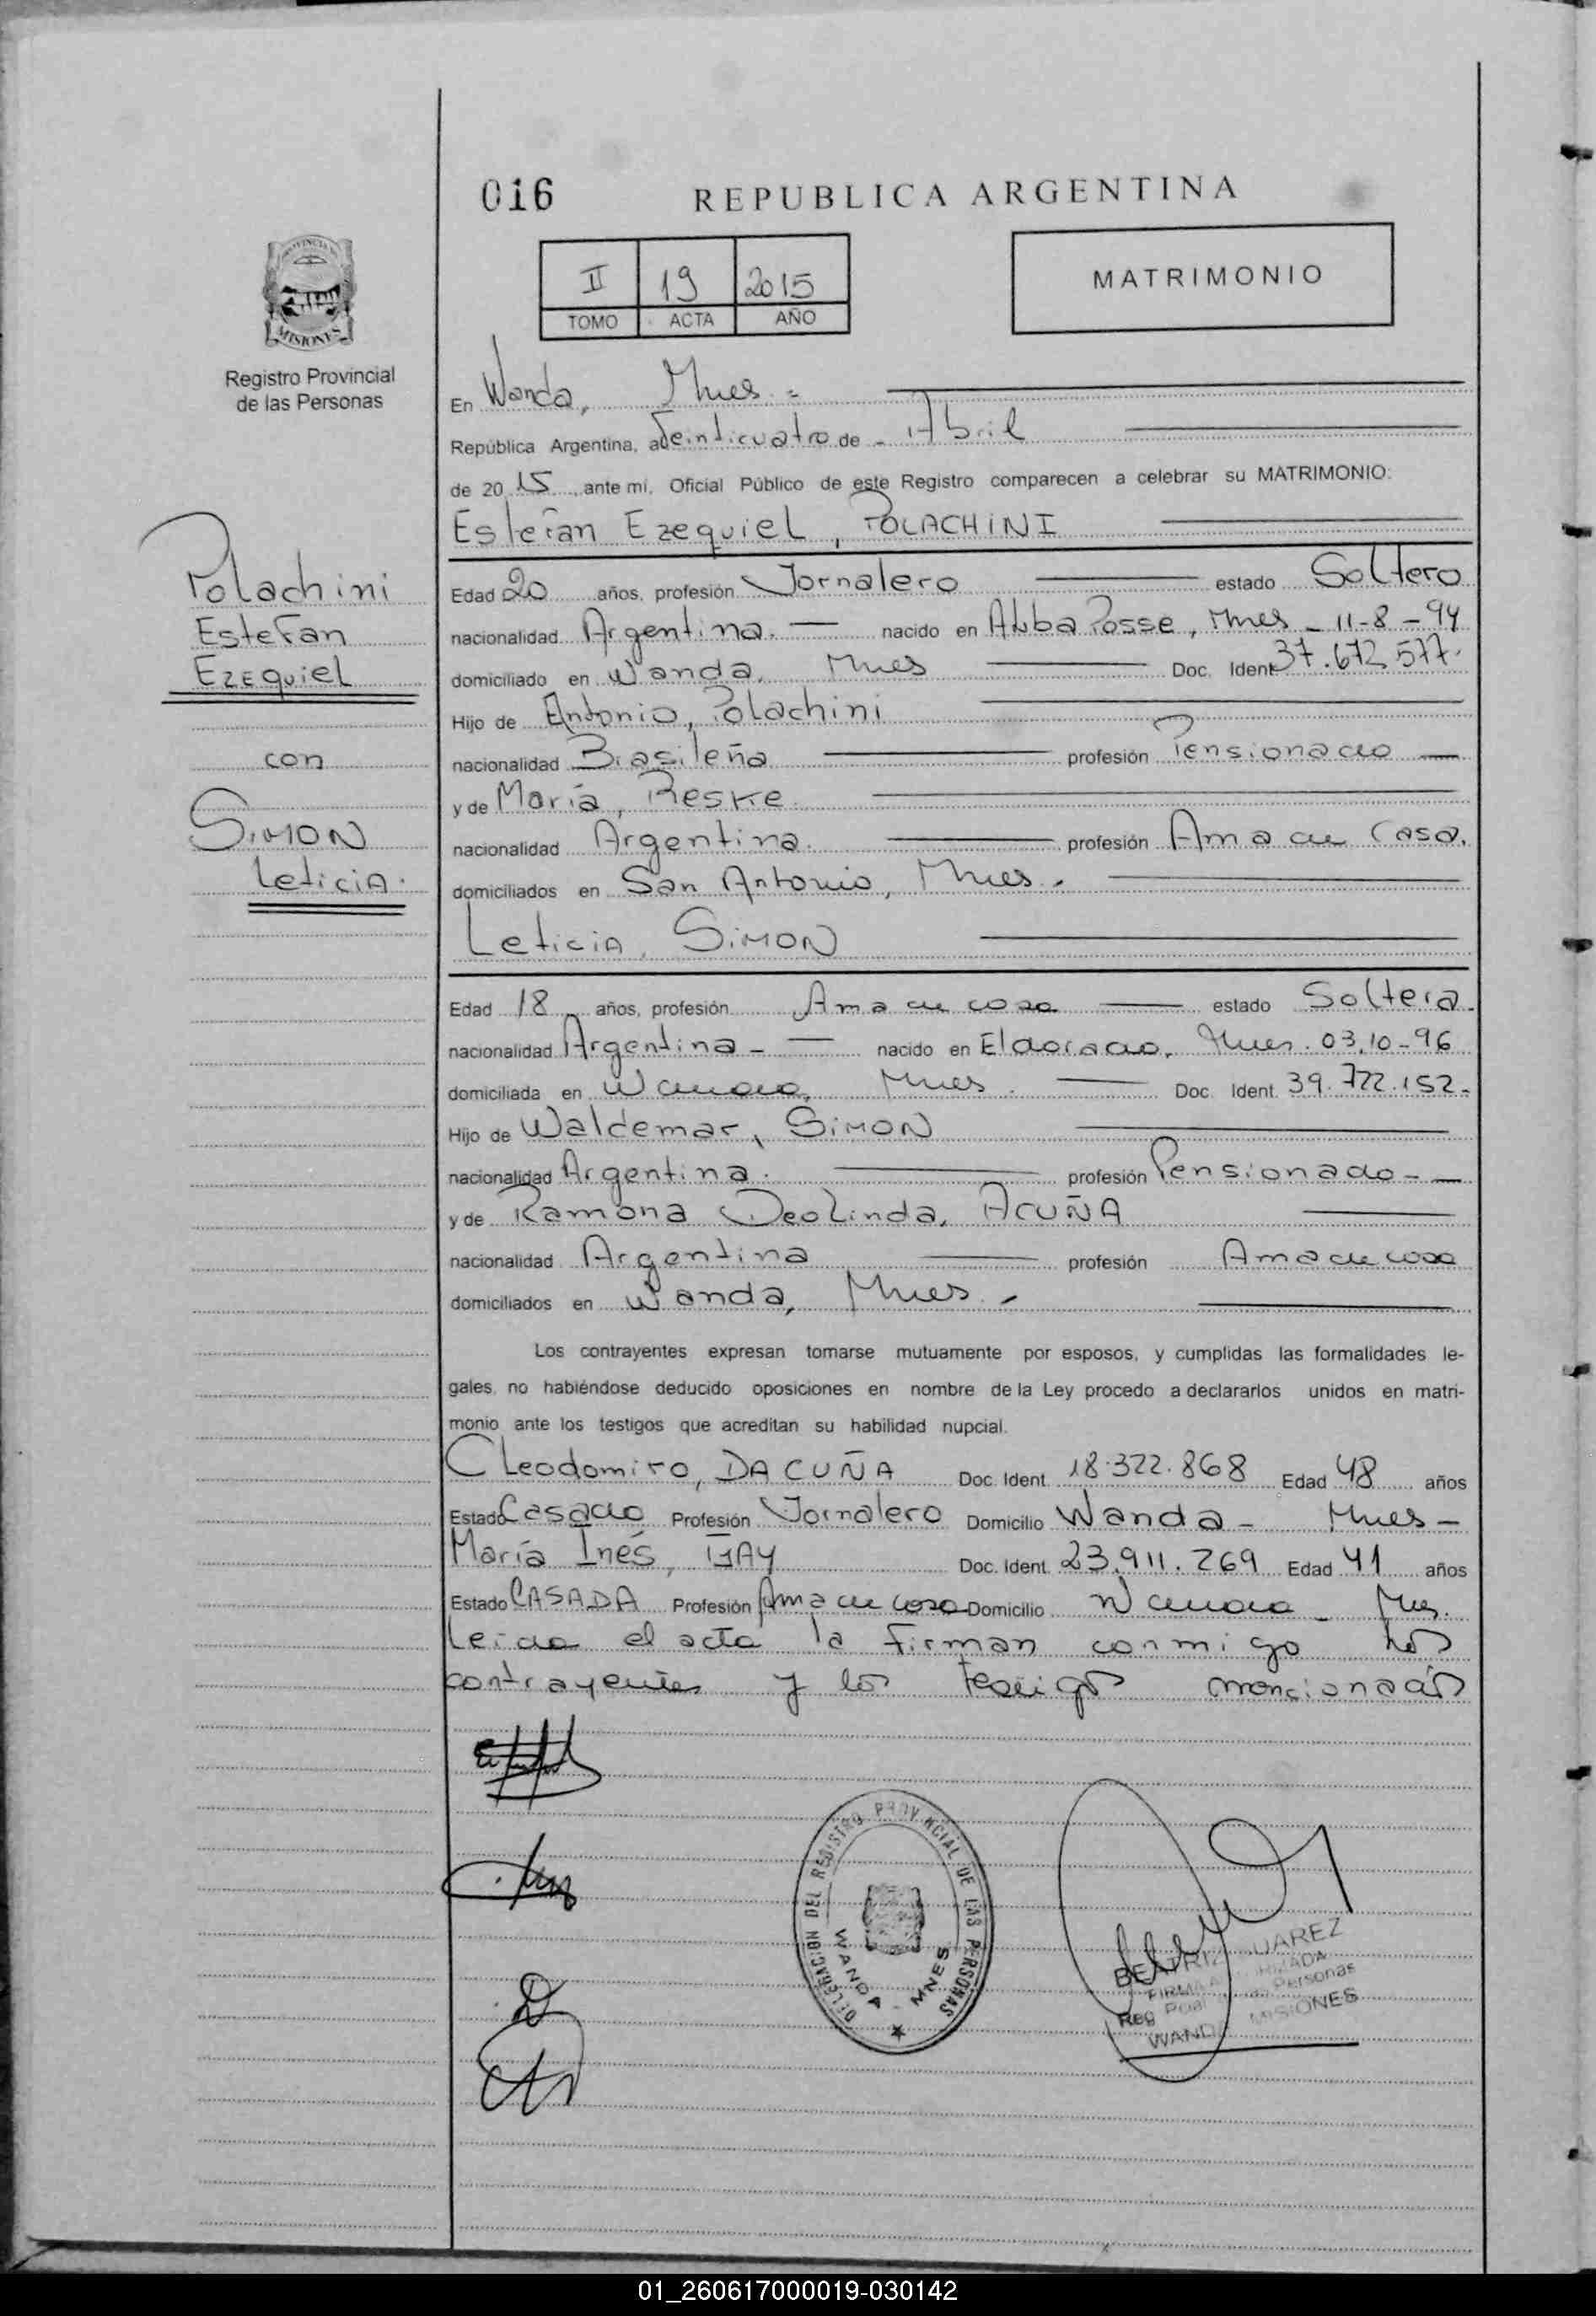 016
REPUBLICA ARGENTINA
II 19 2015
TOMO ACTA AÑO
MATRIMONIO
PROVINCIA
MISIONES
Registro Provincial
de las Personas
En Wanda, Mnes.=
República Argentina, a Veinticuatro de - Abril
de 20 15, ante mi, Oficial Público de este Registro comparecen a celebrar su MATRIMONIO:
Estefan Ezequiel, POLACHINI
Polachini
Estefan
Ezequiel
con
SIMON
Leticia.
Edad 20 años, profesión Jornalero estado Soltero
nacionalidad Argentina. nacido en Alba Posse, Mnes - 11-8-94
domiciliado en Wanda, Mnes Doc. Ident. 37.672.577.
Hijo de Antonio, Polachini
nacionalidad Brasileña profesión Pensionado
y de María, Reske
nacionalidad Argentina. profesión Ama de Casa.
domiciliados en San Antonio, Mnes.
Leticia, SIMON
Edad 18 años, profesión Ama de casa estado Soltera.
nacionalidad Argentina - nacido en Eldorado, Mnes. 03.10-96
domiciliada en Wanda, Mnes. Doc. Ident. 39.722.152.
Hijo de Waldemar, SIMON
nacionalidad Argentina. profesión Pensionado -
y de Ramona Deolinda, ACUÑA
nacionalidad Argentina profesión Ama de casa
domiciliados en Wanda, Mnes.
Los contrayentes expresan tomarse mutuamente por esposos, y cumplidas las formalidades le-
gales, no habiéndose deducido oposiciones en nombre de la Ley procedo a declararlos unidos en matri-
monio ante los testigos que acreditan su habilidad nupcial.
Cleodomiro, DA CUÑA Doc. Ident. 18.322.868 Edad 48 años
Estado Casado Profesión Jornalero Domicilio Wanda - Mnes -
María Inés, Doc. Ident. 23.911.269 Edad 41 años
Estado CASADA Profesión Ama de casa Domicilio Wanda - Mnes.
Leida el acta la firman conmigo los
contrayentes y los testigos mencionados
DELEGACION DEL REGISTRO PROVINCIAL DE LAS PERSONAS
WANDA - MNES
BEATRIZ SUAREZ
FIRMA AUTORIZADA
Reg Pcial Personas
WANDA MISIONES
01_260617000019-030142